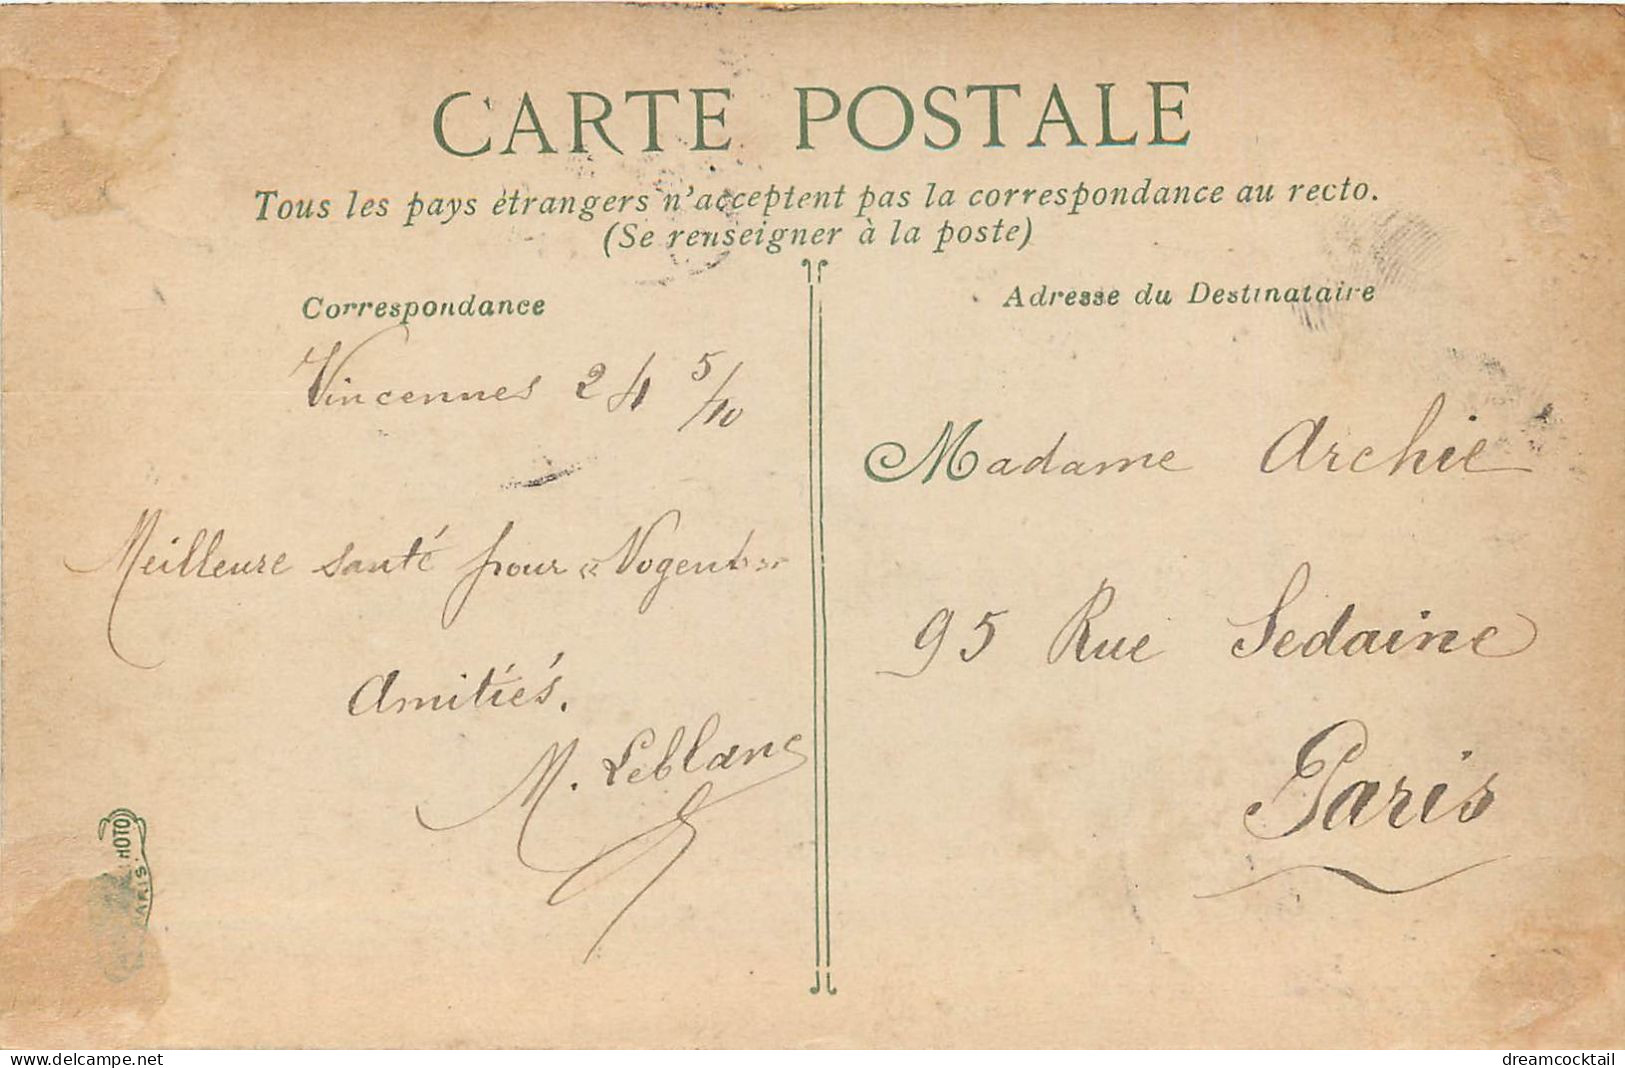 CARTE POSTALE
Tous les pays étrangers n'acceptent pas la correspondance au recto.
(Se renseigner à la poste)
Correspondance
Vincennes 24 5/10
Meilleure santé pour « Nogent »
Amitiés.
M. Leblanc
Adresse du Destinataire
Madame Archie
95 Rue Sedaine
Paris
delcampe.net
dreamcocktail